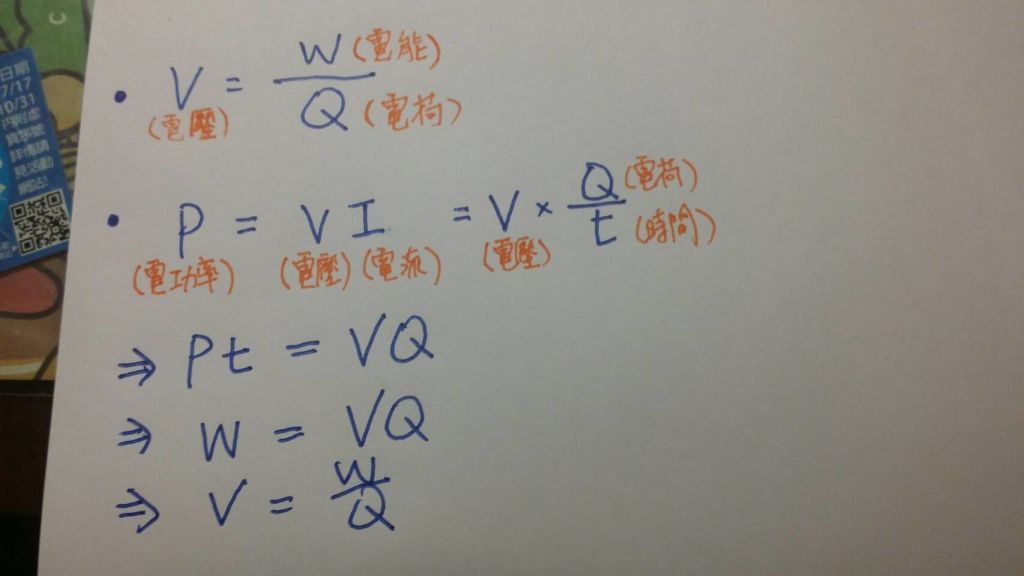 日期
7/17
10/31
見活動
網站!
• V = W/Q
(電壓) (電能) (電荷)
• P = VI = V × Q/t
(電功率) (電壓) (電流) (電壓) (電荷) (時間)
⇒ Pt = VQ
⇒ W = VQ
⇒ V = W/Q